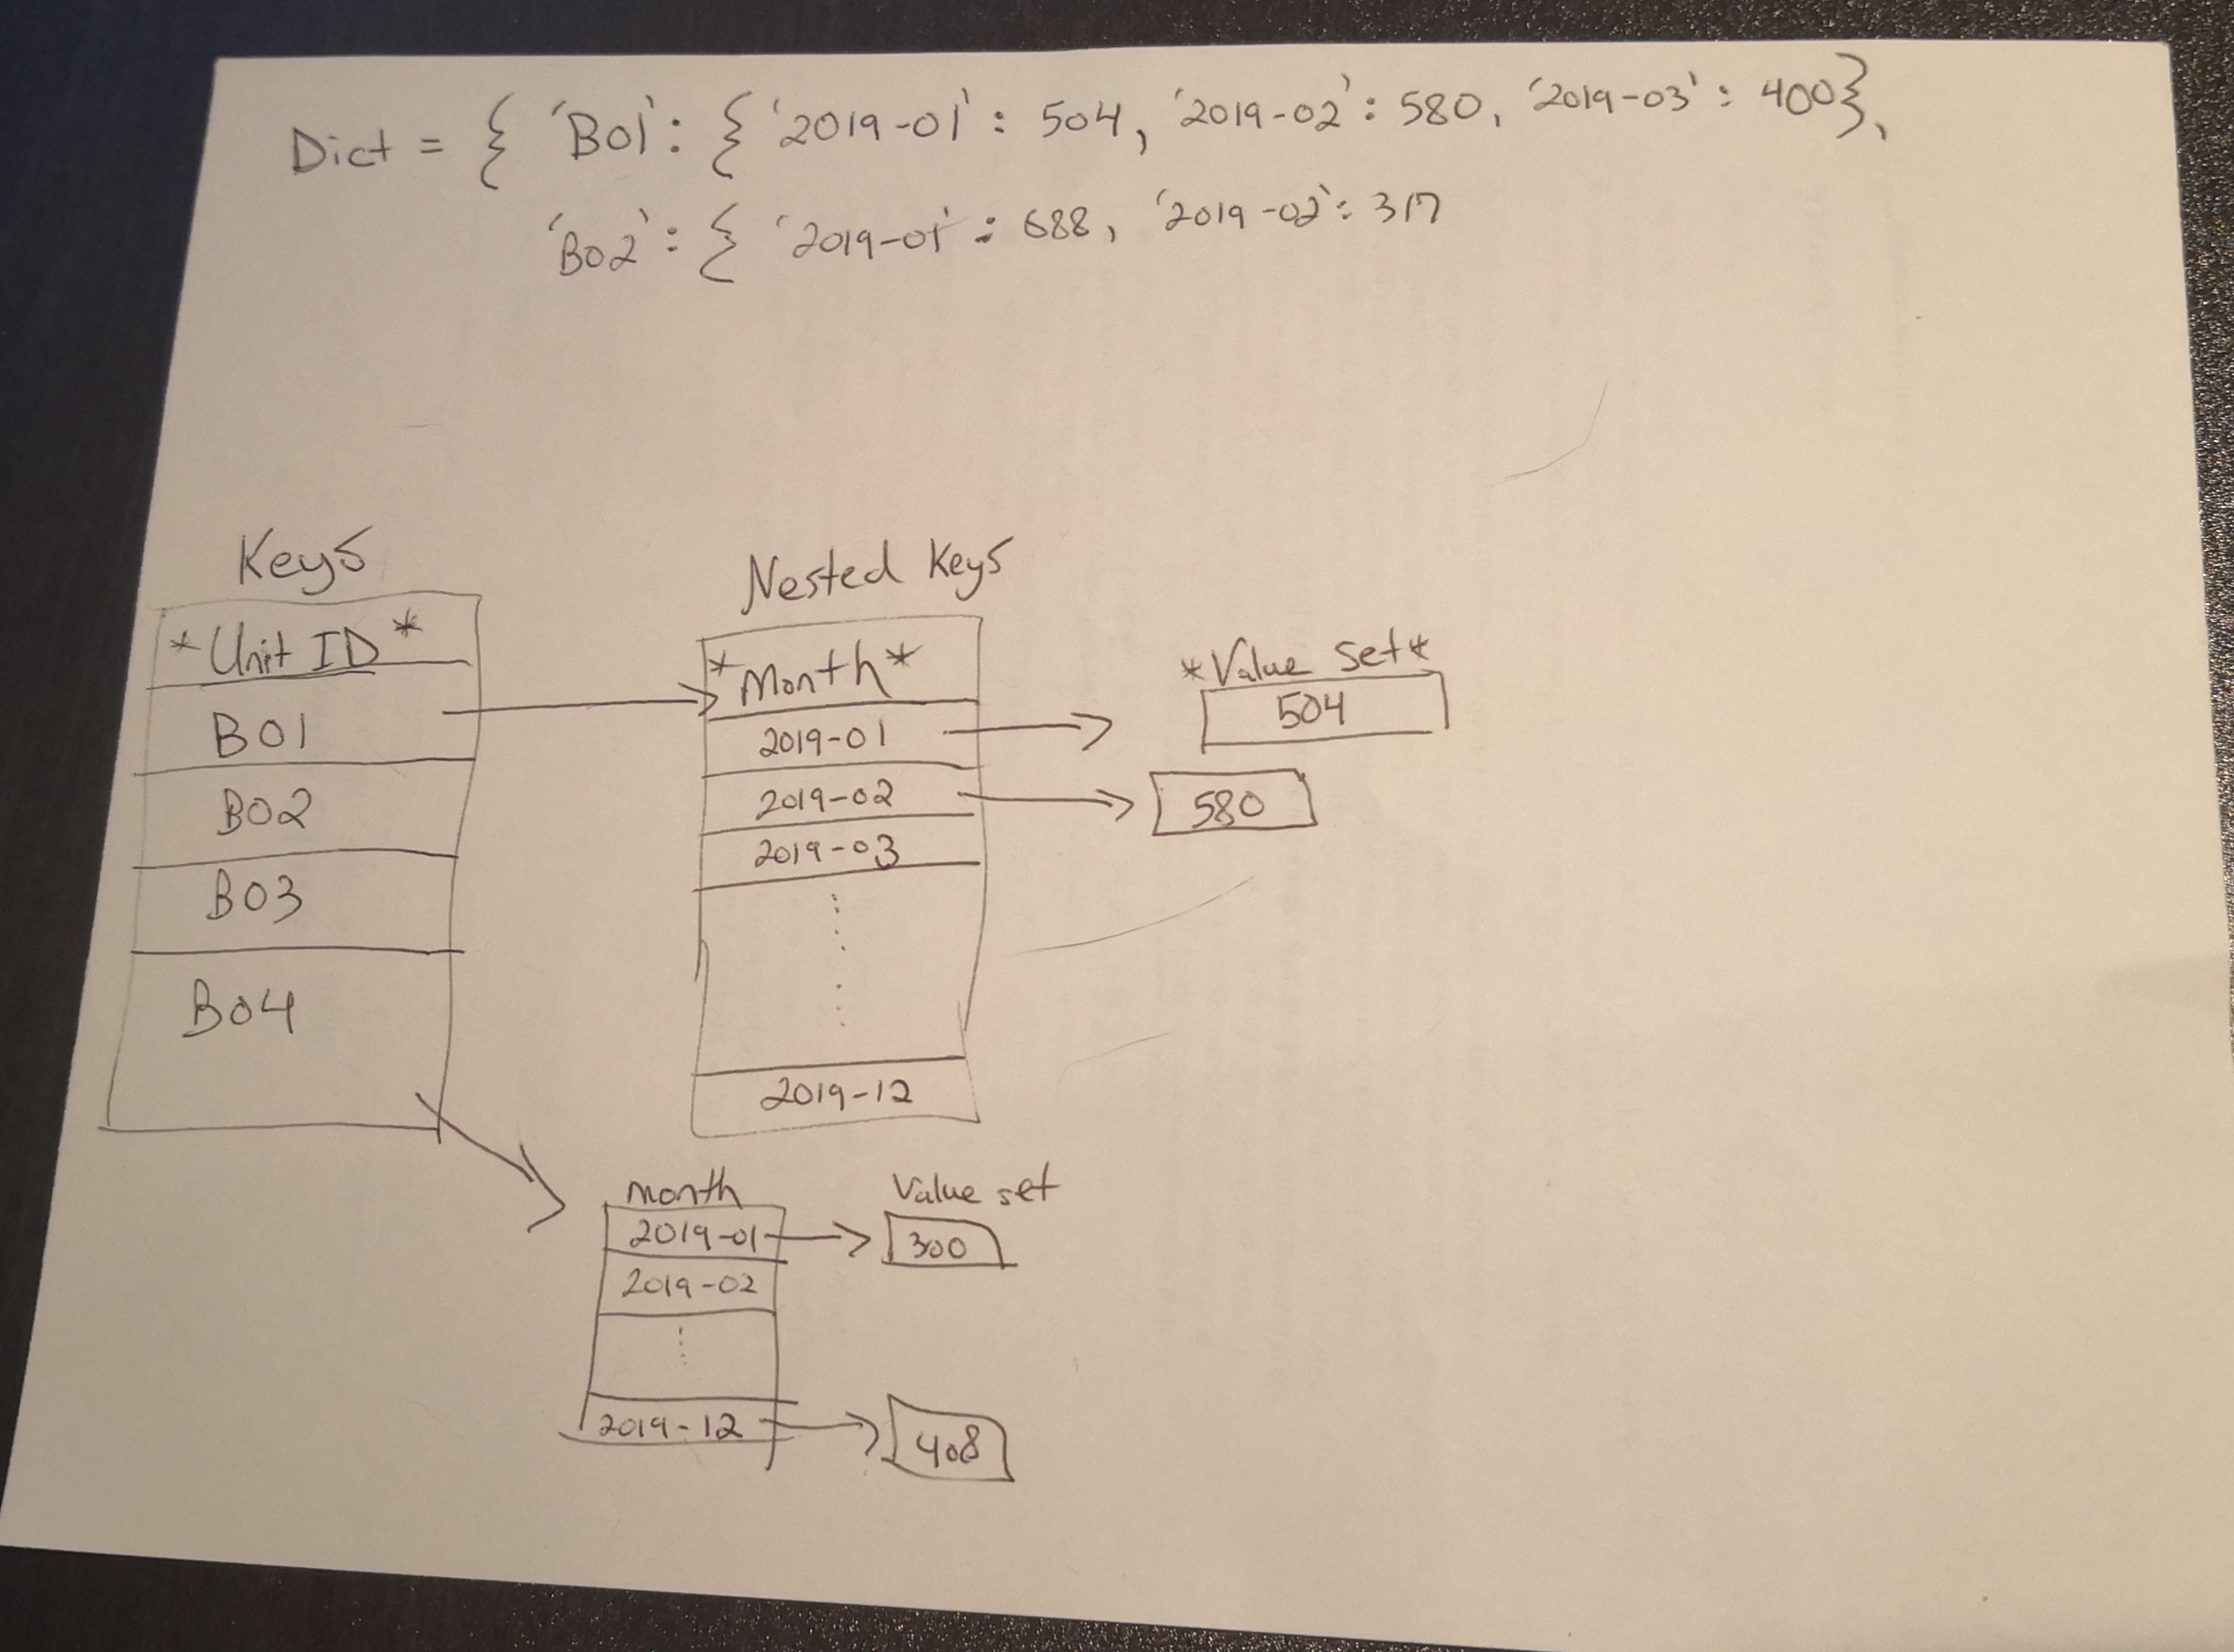 Dict = { 'B01': { '2019-01': 504, '2019-02': 580, '2019-03': 400},
'B02': { '2019-01': 688, '2019-02': 317
Keys
*Unit ID*
B01
B02
B03
B04
Nested Keys
*Month*
2019-01
2019-02
2019-03
2019-12
*Value Set*
504
580
month
2019-01
2019-02
2019-12
Value set
300
408